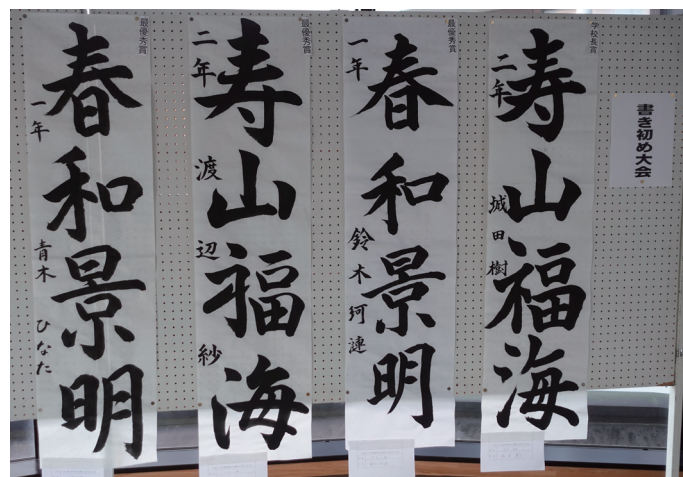 書き初め大会
学校長賞
寿山福海
二年 城田樹
最優秀賞
春和景明
一年 鈴木珂漣
最優秀賞
寿山福海
二年 渡辺紗
最優秀賞
春和景明
一年 青木ひなた